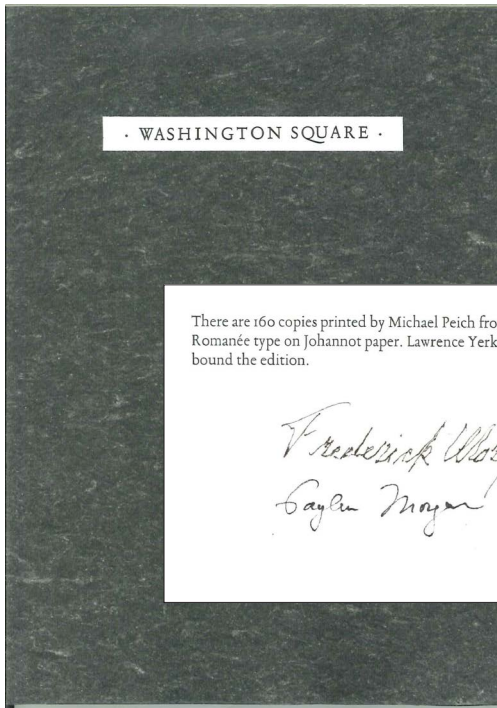 · WASHINGTON SQUARE ·
There are 160 copies printed by Michael Peich fro
Romanée type on Johannot paper. Lawrence Yerk
bound the edition.
Frederick Mor
Gaylen Morgan